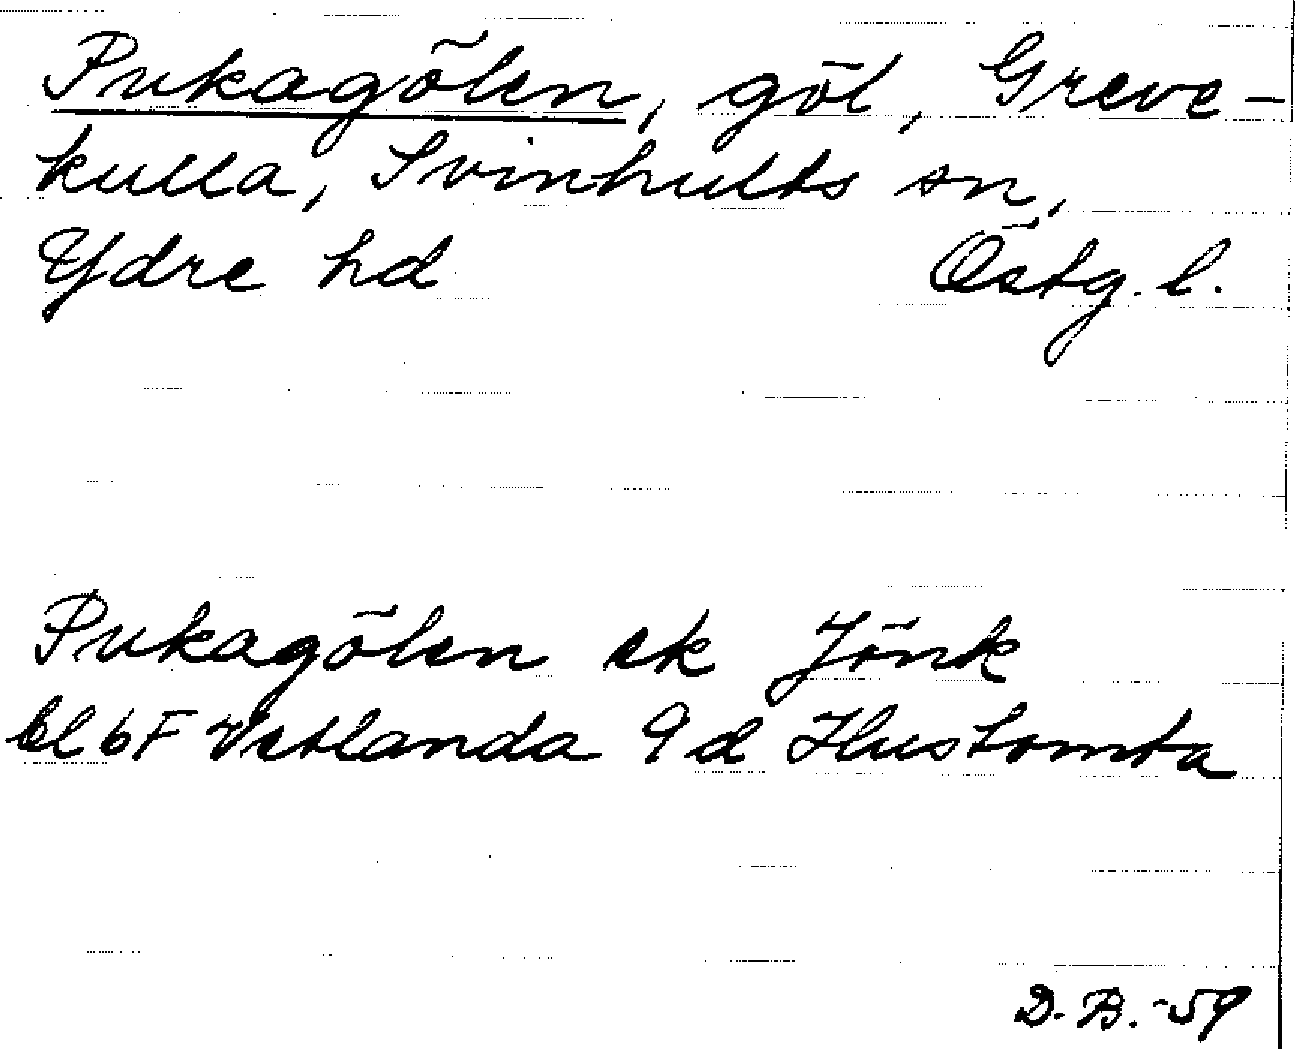 Pukagölen, göl, Greve-
kulla, Svinhults sn,
Ydre hd Östg. l.
Pukagölen ek Jönk
bl 6F Vetlanda 9d Hustomta
D. B. -59